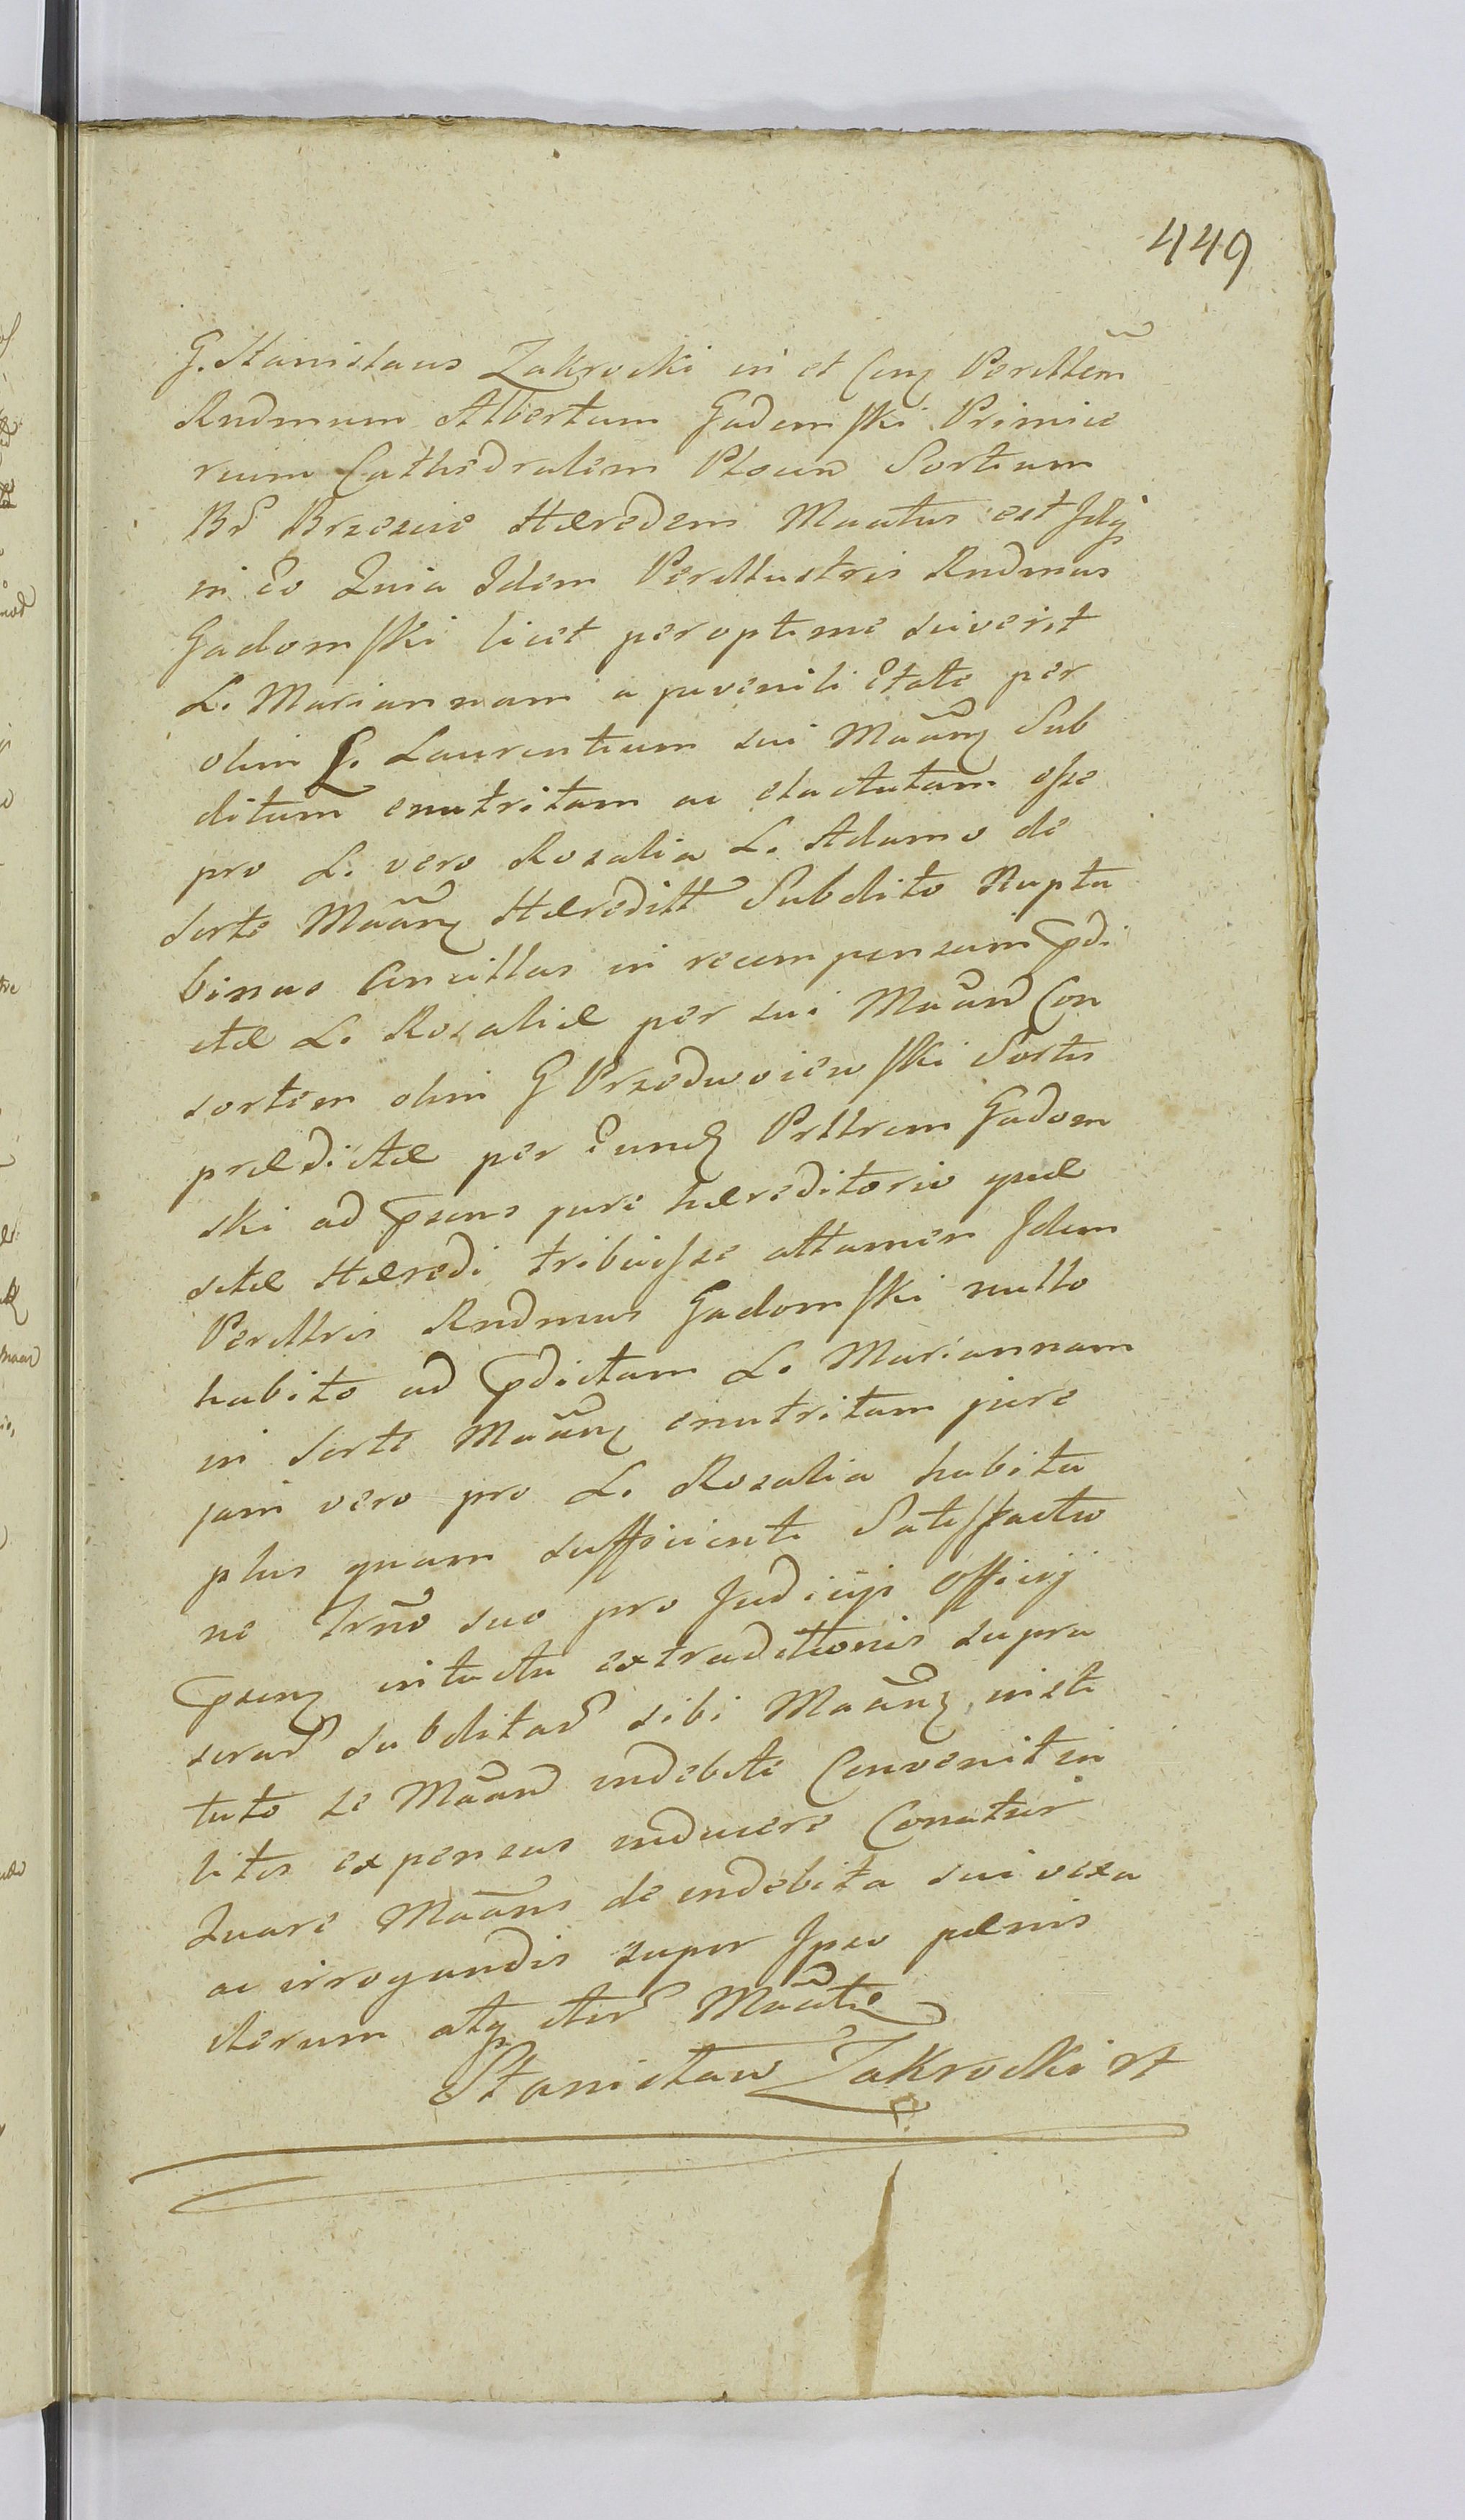 449
G. Stanislaus Zakrocki in et Cunz Perillem̃
Rndmum Albertum Gadomski Primice
rium Cathedralem Plocen Sortium
Br̃ Brzezcie Hæredem Maatus est Idq
in Eo Quia Idem Perillustris Rndmus
Gadomski licet peroptime sciverit
L. Mariannam a juvenili Etate per
olim L. Laurentium sui Mãanz Sub
ditum enutritam ac elactatam esse
pro L. vero Rozalia L. Adamo de
sorte Mãanz Hæreditt Subdito Nupta
binas Ancillas in recompensam pdi
ctæ L. Rozaliæ per sui Mãan Con
sortem olim G Przedwoiewski Sortis
prædictæ per Eund Prllrem Gadom
ski ad psens jure hæreditario quæ
sitæ Hæredi tribuisse attamen Idem
Perillris Rndmus Gadomski nullo
habito ad pdictam L. Mariannam
in sorte Mãanz enutritam jure
jam vero pro L. Rozalia habita
plus quam sufficienti Satisfactio
ne Trño suo pro Judicijs Officij
psenz intuitu extraditionis supra
scrad subditar sibi Mãanz insti
tuto se Mãan indebite Convenit in
litis expensas inducere Conatur
Quare Mãans de indebita sui vexa
ac irrogandis super Ipso pænis
iterum atq iter Mãatẽ
Stanisław Zakrocki